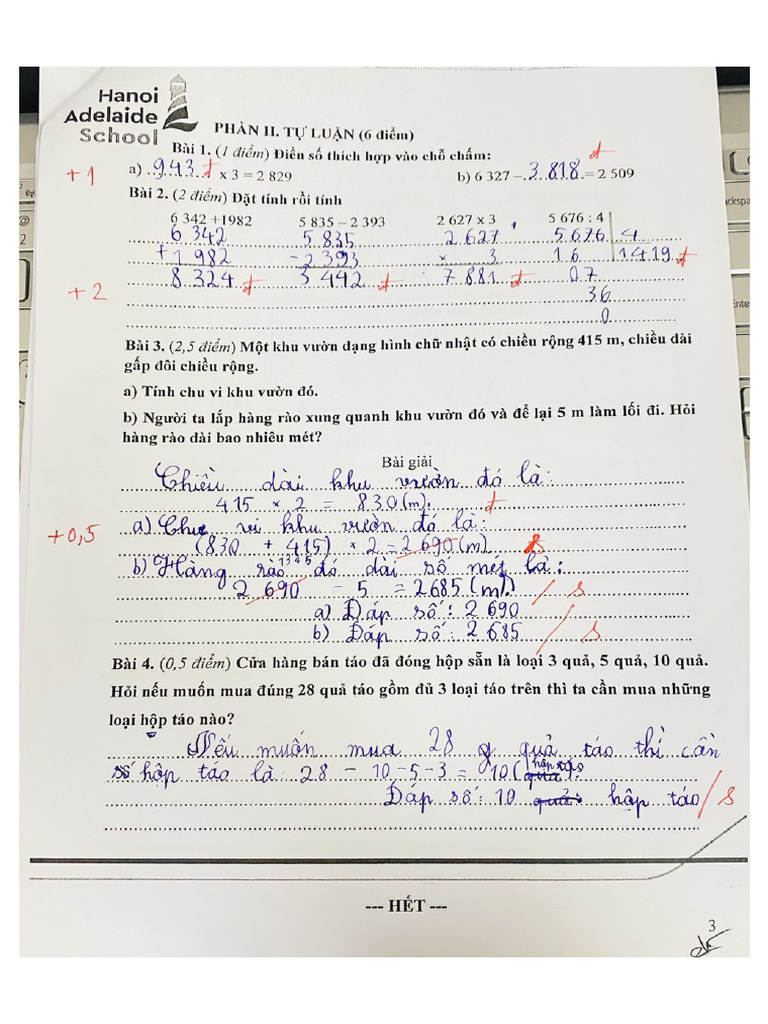 Hanoi
Adelaide
School
PHẦN II. TỰ LUẬN (6 điểm)
Bài 1. (1 điểm) Điền số thích hợp vào chỗ chấm:
+1
a) 943 đ x 3 = 2 829 b) 6 327 – 3 818 = 2 509 đ
Bài 2. (2 điểm) Đặt tính rồi tính
6 342 +1982 5 835 – 2 393 2 627 x 3 5 676 : 4
6 342 5 835 2 627 5676 4
+ 1 982 - 2 393 × 3 16 1419 đ
8 324 đ 3 442 đ 7 881 đ 07
+2
36
0
Bài 3. (2,5 điểm) Một khu vườn dạng hình chữ nhật có chiều rộng 415 m, chiều dài
gấp đôi chiều rộng.
a) Tính chu vi khu vườn đó.
b) Người ta lắp hàng rào xung quanh khu vườn đó và để lại 5 m làm lối đi. Hỏi
hàng rào dài bao nhiêu mét?
Bài giải
Chiều dài khu vườn đó là:
415 × 2 = 830 (m). đ
+0,5
a) Chu vi khu vườn đó là:
(830 + 415) × 2 = 2 690 (m). s
1345
b) Hàng rào đó dài số mét là:
2 690 - 5 = 2685 (m). / s
a) Đáp số: 2 690
b) Đáp số: 2 685 / s
Bài 4. (0,5 điểm) Cửa hàng bán táo đã đóng hộp sẵn là loại 3 quả, 5 quả, 10 quả.
Hỏi nếu muốn mua đúng 28 quả táo gồm đủ 3 loại táo trên thì ta cần mua những
loại hộp táo nào?
Nếu muốn mua 28 q quả táo thì cần
hộp táo
số hộp táo là: 28 - 10 - 5 - 3 = 10 (quả).
Đáp số: 10 quả: hộp táo / s
--- HẾT ---
3